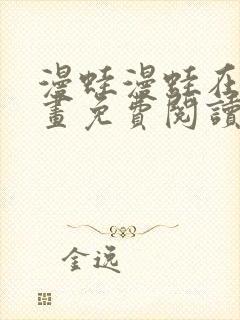 漫蛙漫蛙在
畫免費閱讀
金逸